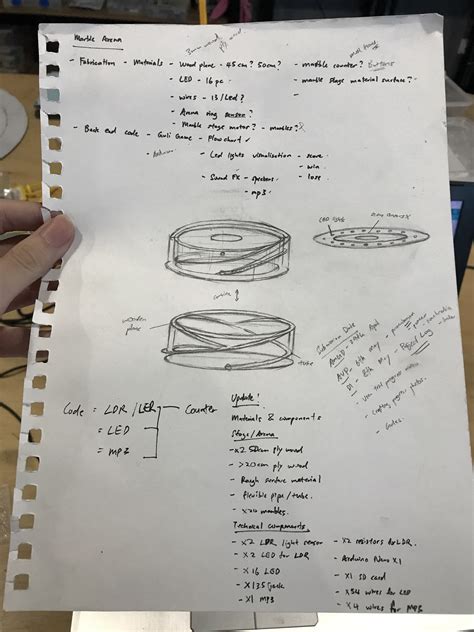 Marble Arena
- Fabrication - Materials - Wood plane - 45cm? 50cm? - marble counter? Buttons
ply wood
- LED - 16 pc - marble stage material surface?
- wires - 13/Led?
- Arena ring sensor?
- Marble stage motor? - marbles?
- Back end code - Guli Game - Flowchart ✓
Arduino - Led lights visualisation - score
- win
- lose
- Sound FX - speakers
- mp3
LED lights
combine
wooden plane
tube
Submission Date
Code = LDR / LED - Counter
= LED
= MP3
Update!
Materials & components
Stage/Arena
- x2 50cm ply wood
- >20cm ply wood
- Rough surface material
- flexible pipe/tube.
- x20 marbles.
Technical components
- x2 LDR light sensor - x2 resistors for LDR
- x2 LED for LDR - Arduino Nano x1
- x16 LED - x1 SD card
- x1 3.5 jack - x34 wires for LED
- x1 MP3 - x4 wires for MP3